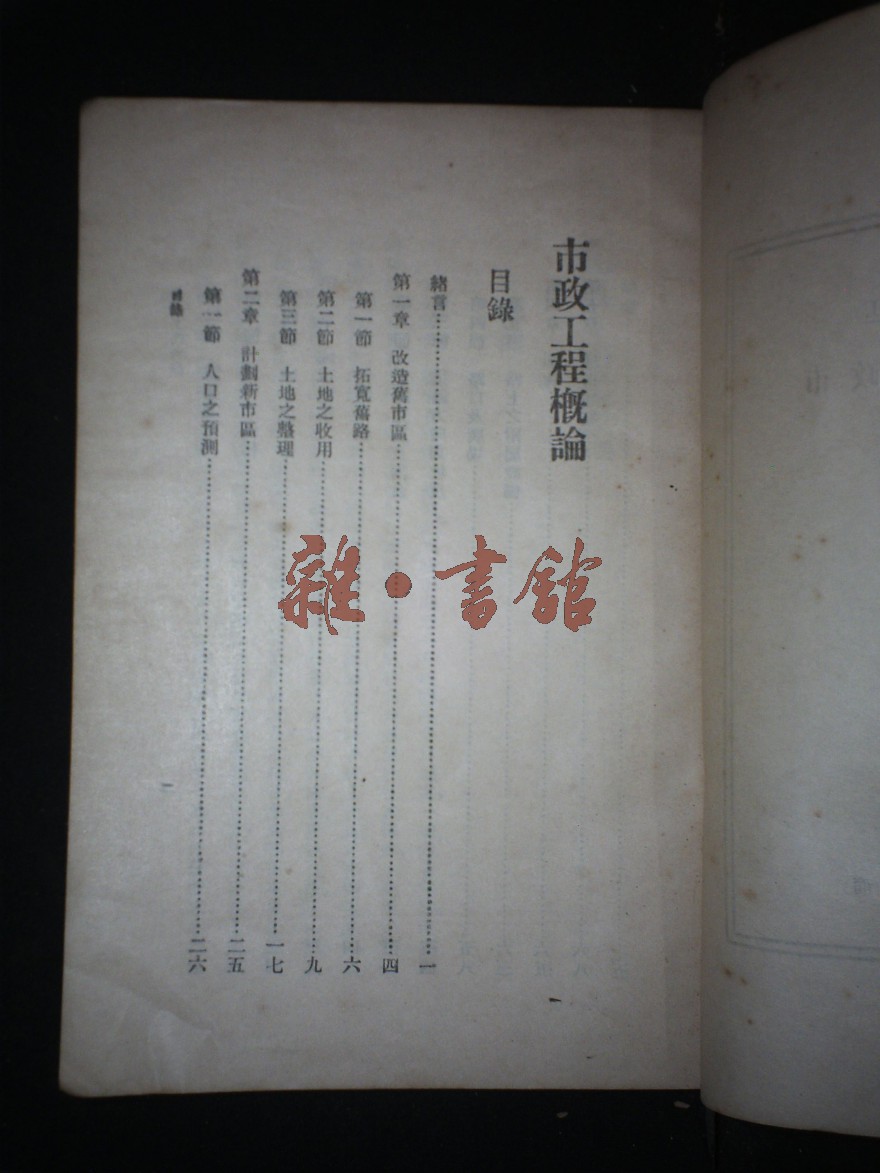 市政工程概論
目錄
緒言……一
第一章 改造舊市區……四
第一節 拓寬舊路……六
第二節 土地之收用……九
第三節 土地之整理……一七
第二章 計劃新市區……二五
第一節 人口之預測……二六
目錄
雜·書館